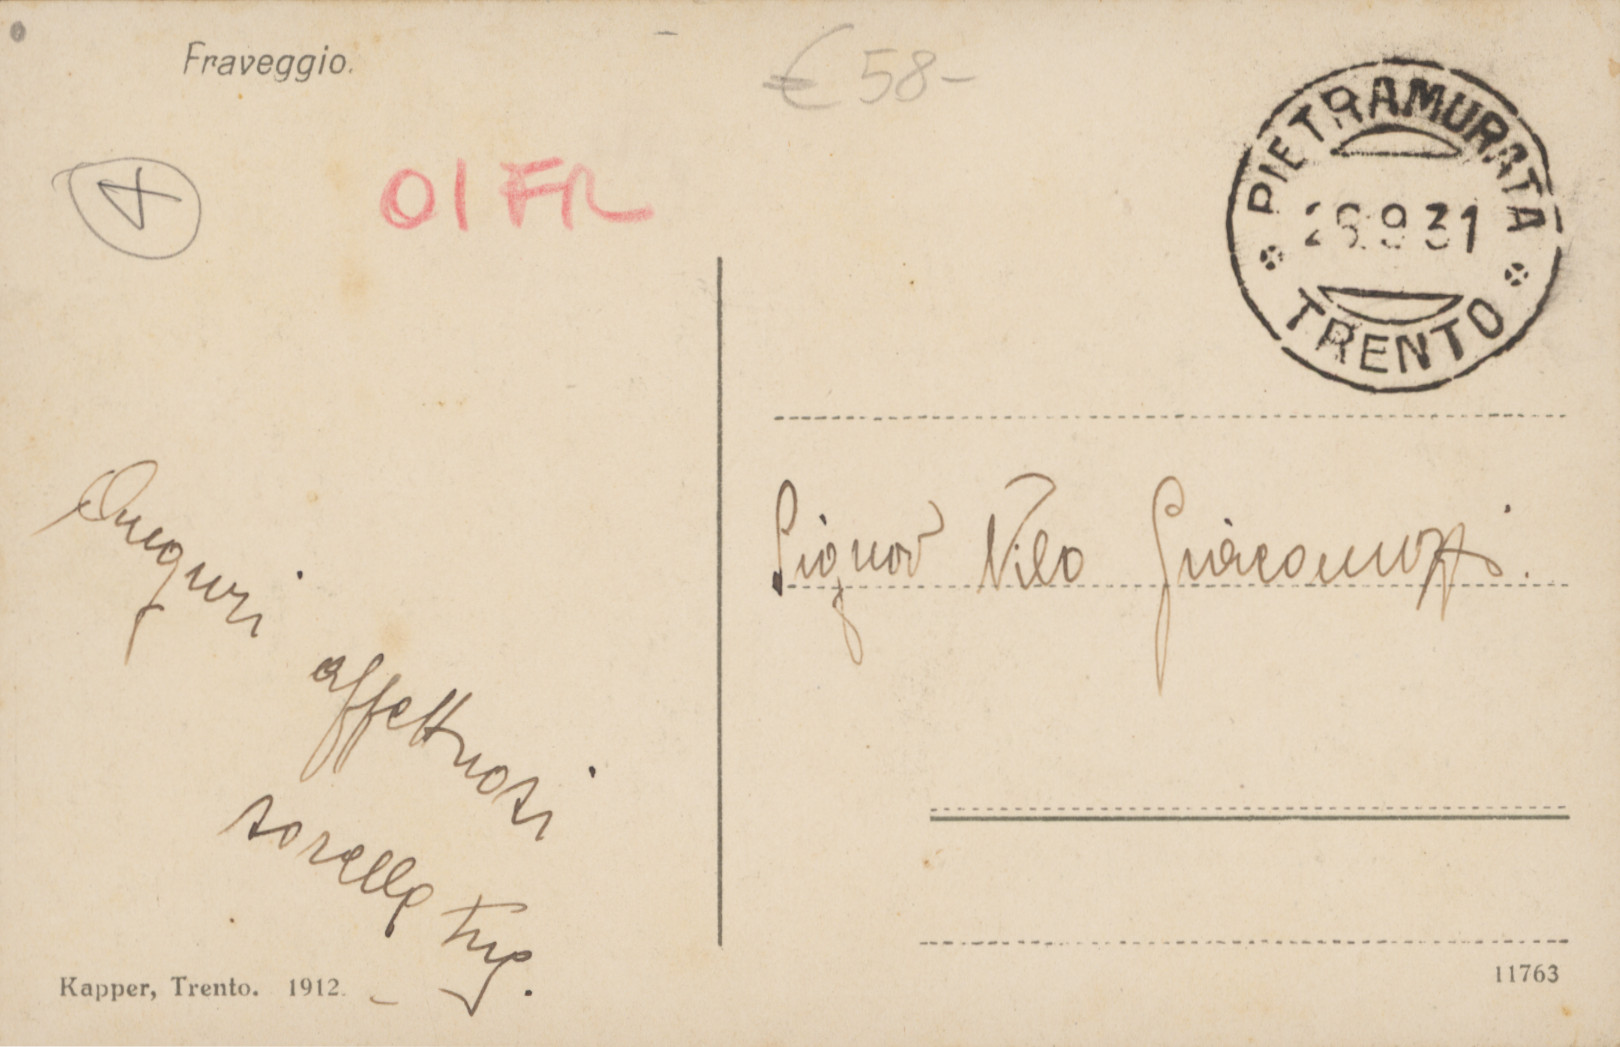 Fraveggio.
€ 58-
01 FR
PIETRAMURATA
26.9 31
TRENTO
Auguri
affettuosi
sorella tua.
Signor Vilo Giacomozzi.
Kapper, Trento. 1912.
11763